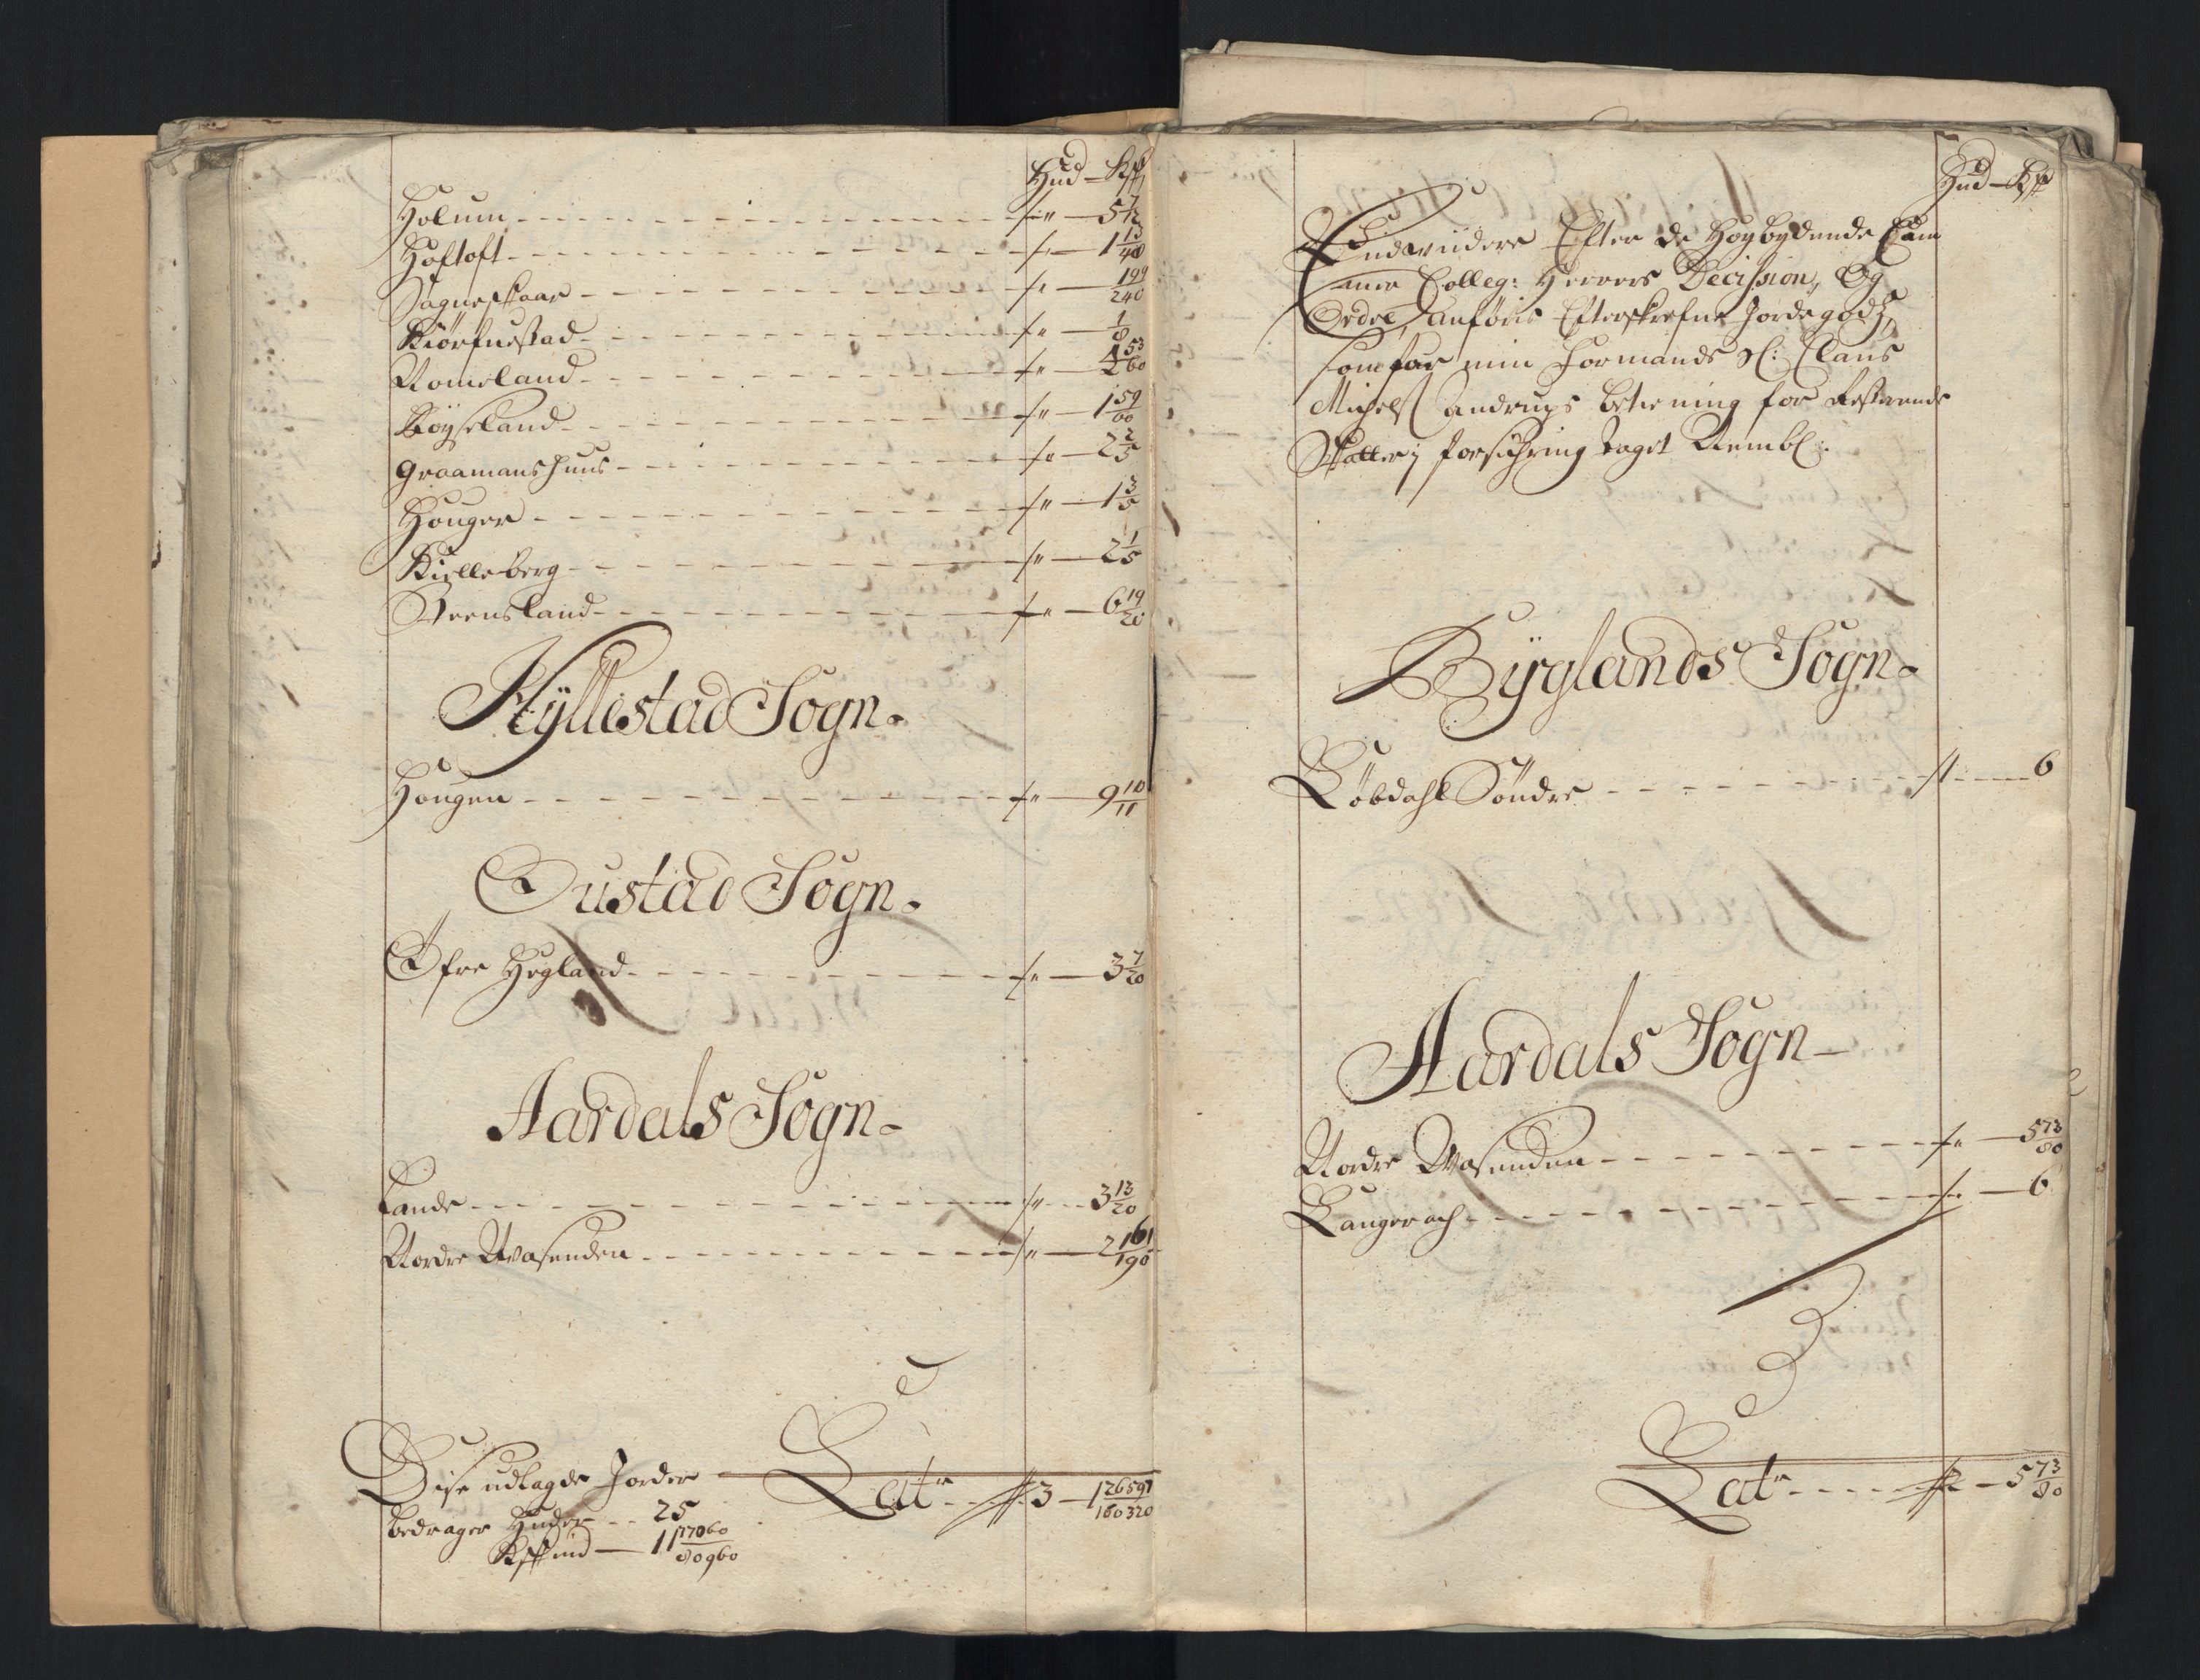 Hud - Skd
Holum - - - " - 5 7/12
Hoftoft - - - " - 1 13/48
Sagneskaar - - - " - 199/240
Kiørfuestad - - - " - 1/8
Romeland - - - " - 4 53/60
Røyseland - - - " - 1 59/60
Graamanshuus - - - " - 2 2/5
Houger - - - " - 1 3/5
Kielleberg - - - " - 2 1/5
Steensland - - - " - 6 19/20
Hyllestad Sogn.
Hougen - - - " - 9 10/11
Oustad Sogn.
Øfre Hegland - - - " - 3 7/20
Aardals Sogn.
Lande - - - " - 3 13/20
Nordre Waasenden - - - " - 2 161/190
Lat - - 3 - 1 126597/160320
Disse udlagde Jorder
bedrager Huder - - 25
Skind - 11 77060/80960
Hud - Skd
Endwiidere Efter de Høybydende Cam
mer Colleg: Herrers Decission, Og
Ordre, Anføris Efterskrefne Jordegodz,
som for min Formands Sl: Claus
Michels Andrups betiening for Resterende
Skatter i forsichring taget Nembl:
Byglands Sogn.
Løbdahl Søndre - - - 1 - 6
Aardals Sogn
Nordre Waasenden - - - " - 5 73/80
Langerach - - - " - 6
Lat - - - 2 - 5 73/80